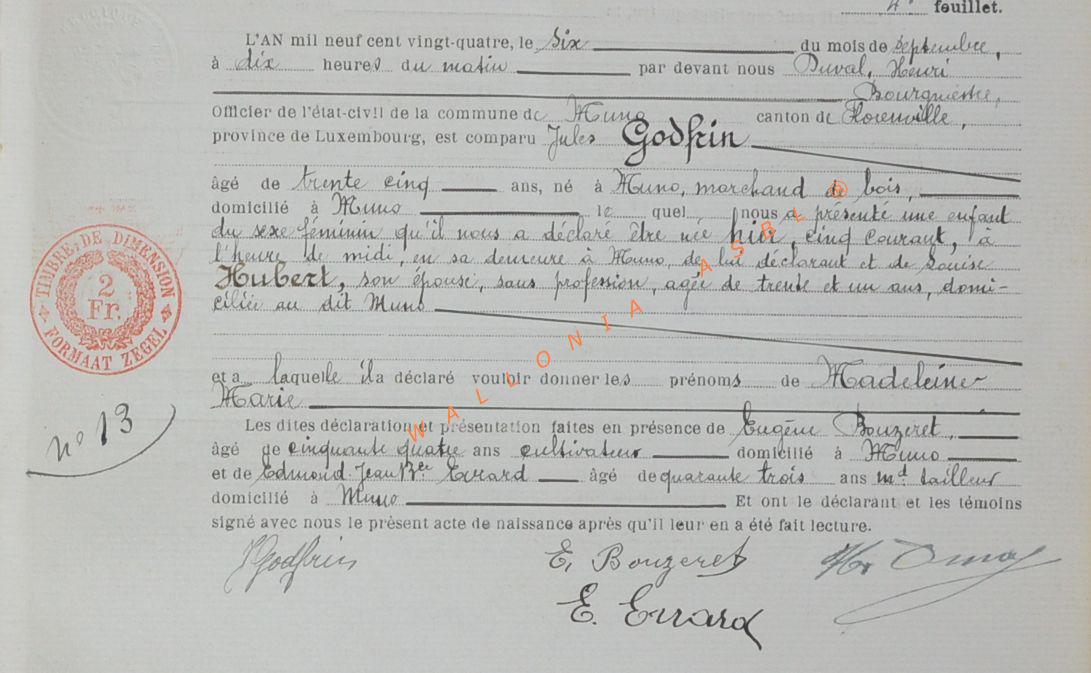 4e feuillet.
L'AN mil neuf cent vingt-quatre, le Six du mois de septembre,
à dix heures du matin par devant nous Duval, Henri
Bourgmestre,
Officier de l'état-civil de la commune de Muno canton de Florenville,
province de Luxembourg, est comparu Jules Godfrin
âgé de trente cinq ans, né à Muno, marchand de bois,
domicilié à Muno lequel nous a présenté une enfant
du sexe féminin qu'il nous a déclaré être née hier, cinq courant, à
l'heure de midi, en sa demeure à Muno, de lui déclarant et de Louise
Hubert, son épouse, sans profession, agée de trente et un ans, domi-
ciliée au dit Muno
et a laquelle il a déclaré vouloir donner les prénoms de Madeleine
Marie
Les dites déclaration et présentation faites en présence de Eugène Bouzeret,
âgé de cinquante quatre ans cultivateur domicilié à Muno
et de Edmond Jean Bte Errard âgé de quarante trois ans md tailleur
domicilié à Muno Et ont le déclarant et les témoins
signé avec nous le présent acte de naissance après qu'il leur en a été fait lecture.
TIMBRE DE DIMENSION
2
Fr.
FORMAAT ZEGEL
n° 13
J Godfrin E. Bouzeret
E. Errard
WALLONIA ASBL ©